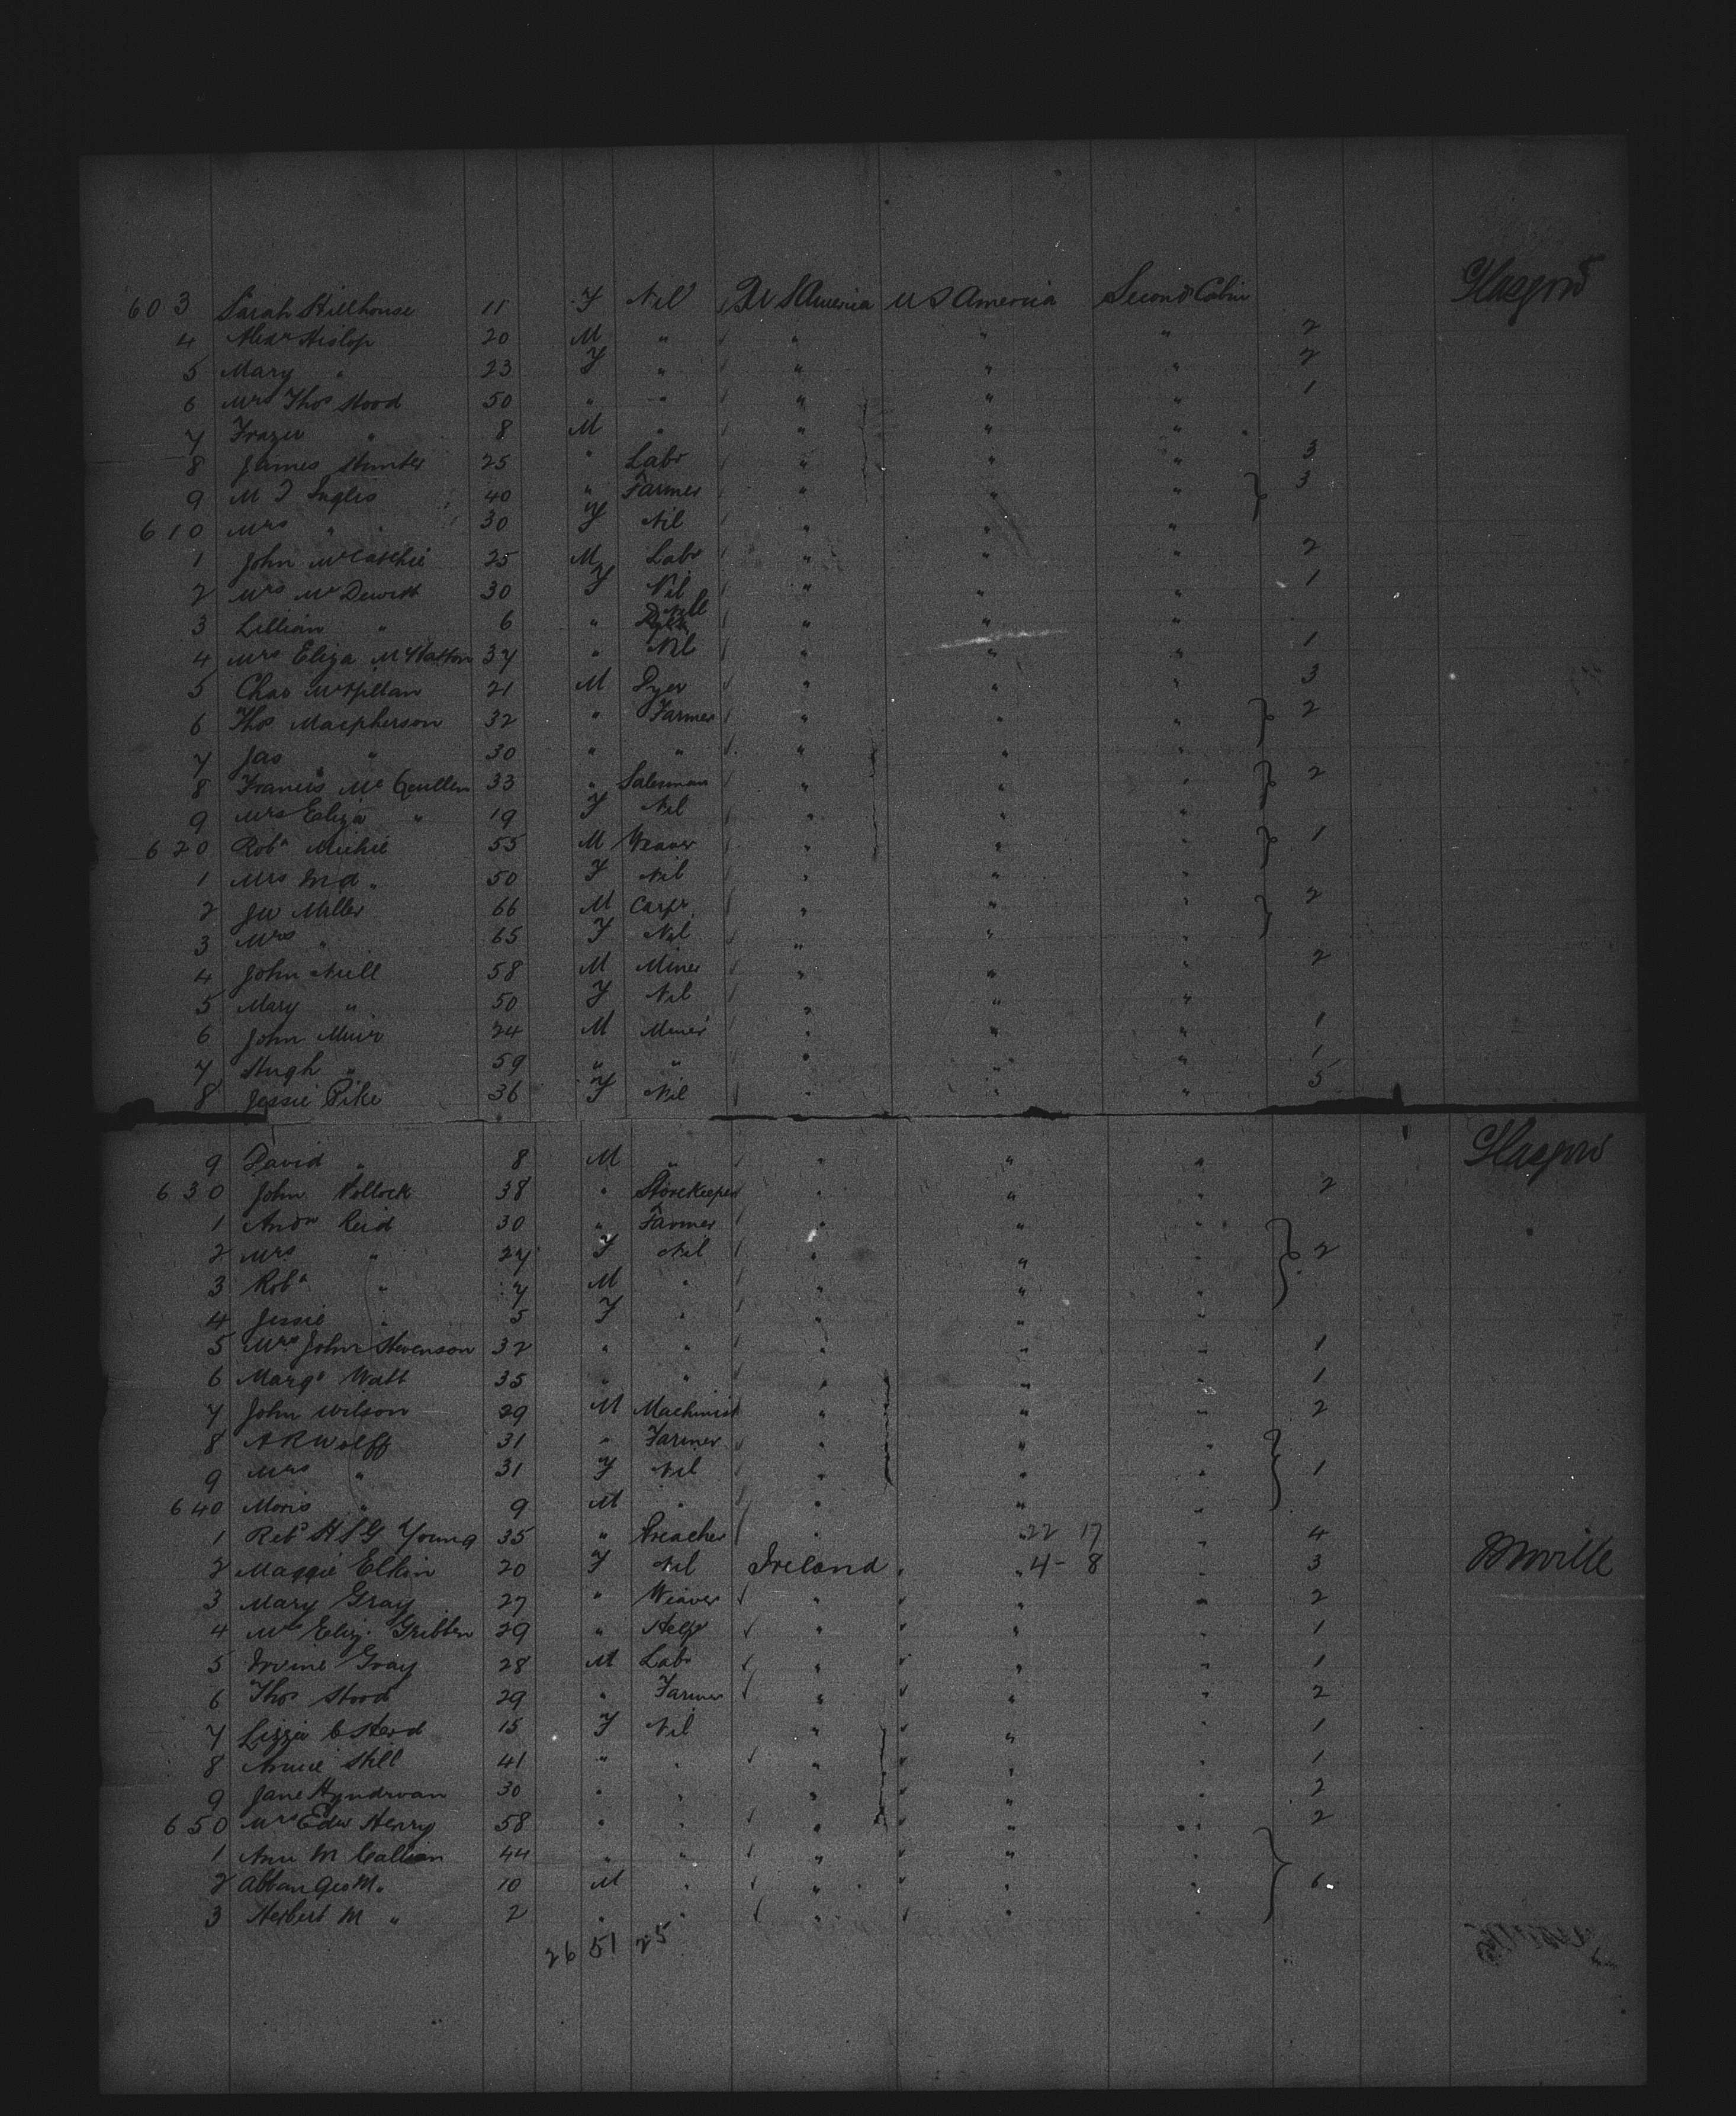 603 Sarah Hillhouse 11 F Nil U S America U S America Second Cabin Glasgow
4 Alexr Hislop 20 M " " " " 2
5 Mary " 23 F " " " " 2
6 Mrs Thos Hood 50 " " " " " 1
7 Frazer " 8 M " " " "
8 James Hunter 25 " Labr " " " 3
9 M J Inglis 40 " Farmer " " " 3
610 Mrs " " 30 F Nil " " "
1 John McCaskie 25 M Labr " " " 2
2 Mrs Mc Dewitt 30 F Nil " " " 1
3 Lillian " 6 " Nil " " "
4 Mrs Eliza M Watson 37 " Nil " " " 1
5 Chas McMillan 21 M Dyer " " " 3
6 Thos Macpherson 32 " Farmer " " " 2
7 Jas " 30 " " " " "
8 Francis Mc Quillen 33 " Salesman " " " 2
9 Mrs Eliza " 19 F Nil " " "
620 Robt Michie 55 M Weaver " " " 1
1 Mrs " 50 F Nil " " "
2 JW Miller 66 M Carpr " " " 2
3 Mrs " 65 F Nil " " "
4 John Neill 58 M Miner " " " 2
5 Mary " 50 F Nil " " "
6 John Muir 24 M Miner " " " 1
7 Hugh " 59 " " " " " 1
8 Jessie Pike 36 F Nil " " " 5
9 David " 8 M " " " " Glasgow
630 John Pollock 38 " Storekeeper " " " 2
1 Andw Reid 30 " Farmer " " "
2 Mrs " 27 F Nil " " " 2
3 Robt " 7 M " " " "
4 Jessie " 5 F " " " "
5 Mrs John Stevenson 32 " " " " " 1
6 Margt Watt 35 " " " " " 1
7 John Wilson 29 M Machinist " " " 2
8 A R Wolff 31 " Farmer " " "
9 Mrs " 31 F Nil " " " 1
640 Moris " 9 M " " " "
1 Revd H S G Young 35 " Preacher " 22 17 " 4
2 Maggie Elkin 20 F Nil Ireland " 4-8 " 3 Moville
3 Mary Gray 27 " Weaver " " " 2
4 Mrs Eliz. Gribben 29 " Help " " " 1
5 Irvine Gray 28 M Labr " " " 1
6 Thos Hood 29 " Farmer " " " 2
7 Lizzie C Herd 15 F Nil " " " 1
8 Annie Hill 41 " " " " " 1
9 Jane Hyndman 30 " " " " " 2
650 Mrs Edw Henry 58 " " " " " 2
1 Ann M Callian 44 " " " " "
2 Geo M " 10 M " " " " 6
3 Herbert M " 2 " " " " "
26 51 25